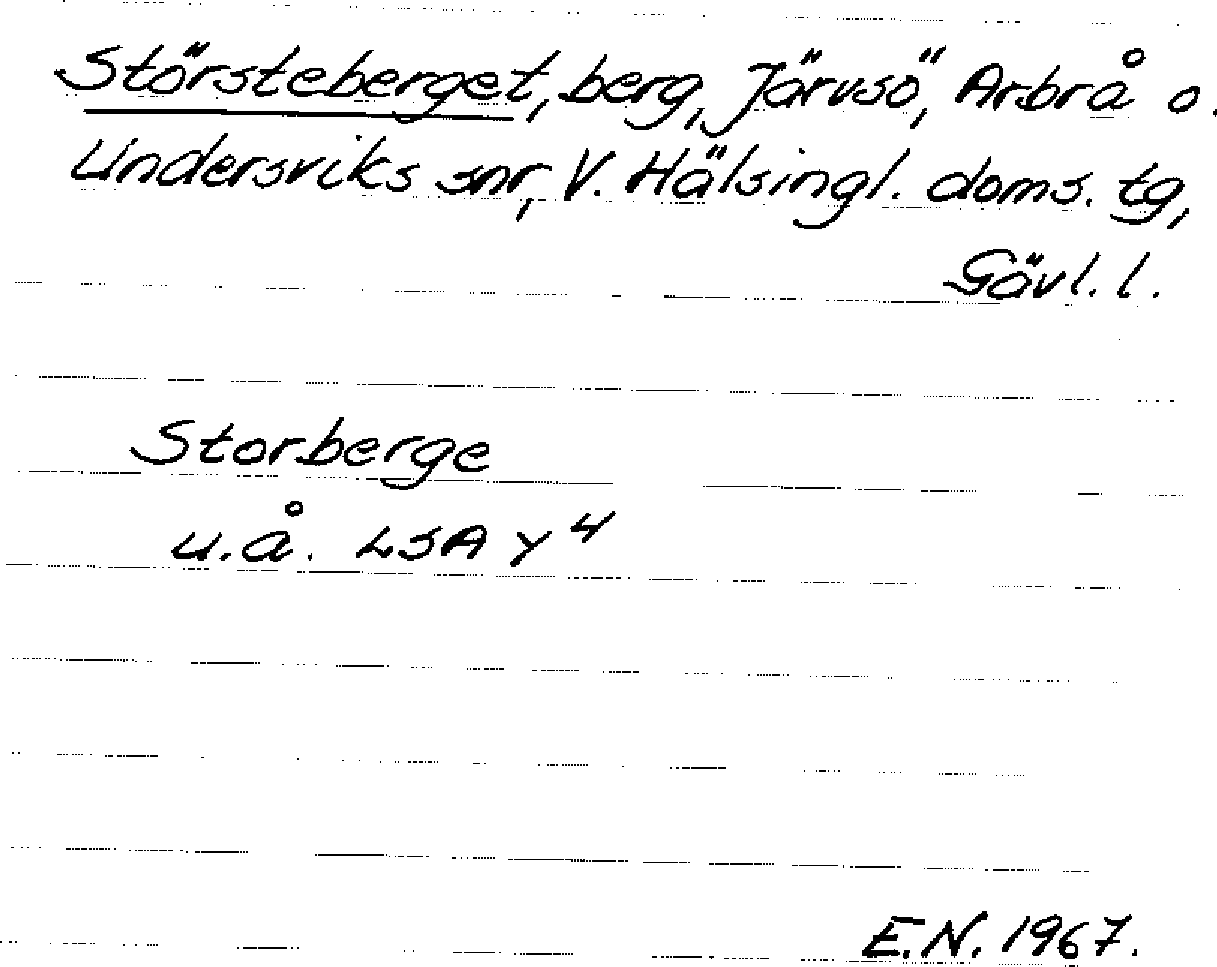 Störsteberget, berg, Järvsö, Arbrå o.
Undersviks snr, V. Hälsingl. doms. tg,
Gävl. l.
Storberge
u.å. LSA Y 4
E.N. 1967.